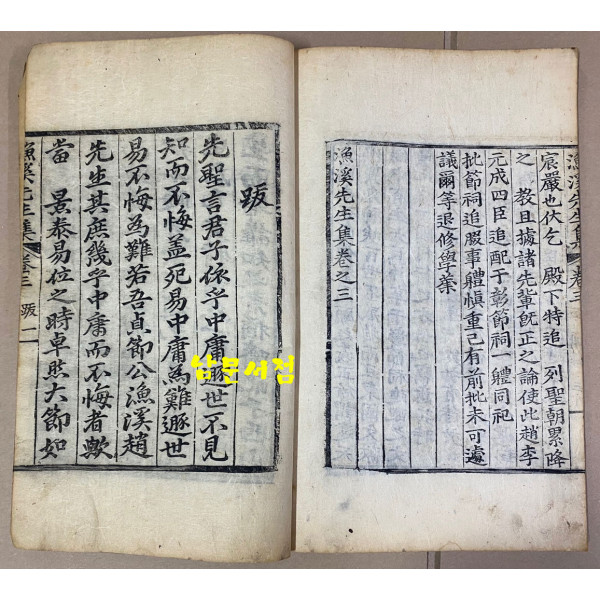 漁溪先生集 卷三
宸嚴也伏乞 殿下特追 列聖朝累降
之 敎且據諸先輩旣正之論使此趙李
元成四臣追配于彰節祠一軆同祀
批節祠追腏事軆愼重已有前批未可遽
議爾等退修學業
漁溪先生集卷之三
跋
先聖言君子依乎中庸遯世不見
知而不悔盖死易中庸爲難遯世
易不悔爲難若吾貞節公漁溪趙
先生其庶幾乎中庸而不悔者歟
當 景泰易位之時卓然大節如
漁溪先生集 卷三 跋 一
남문서점